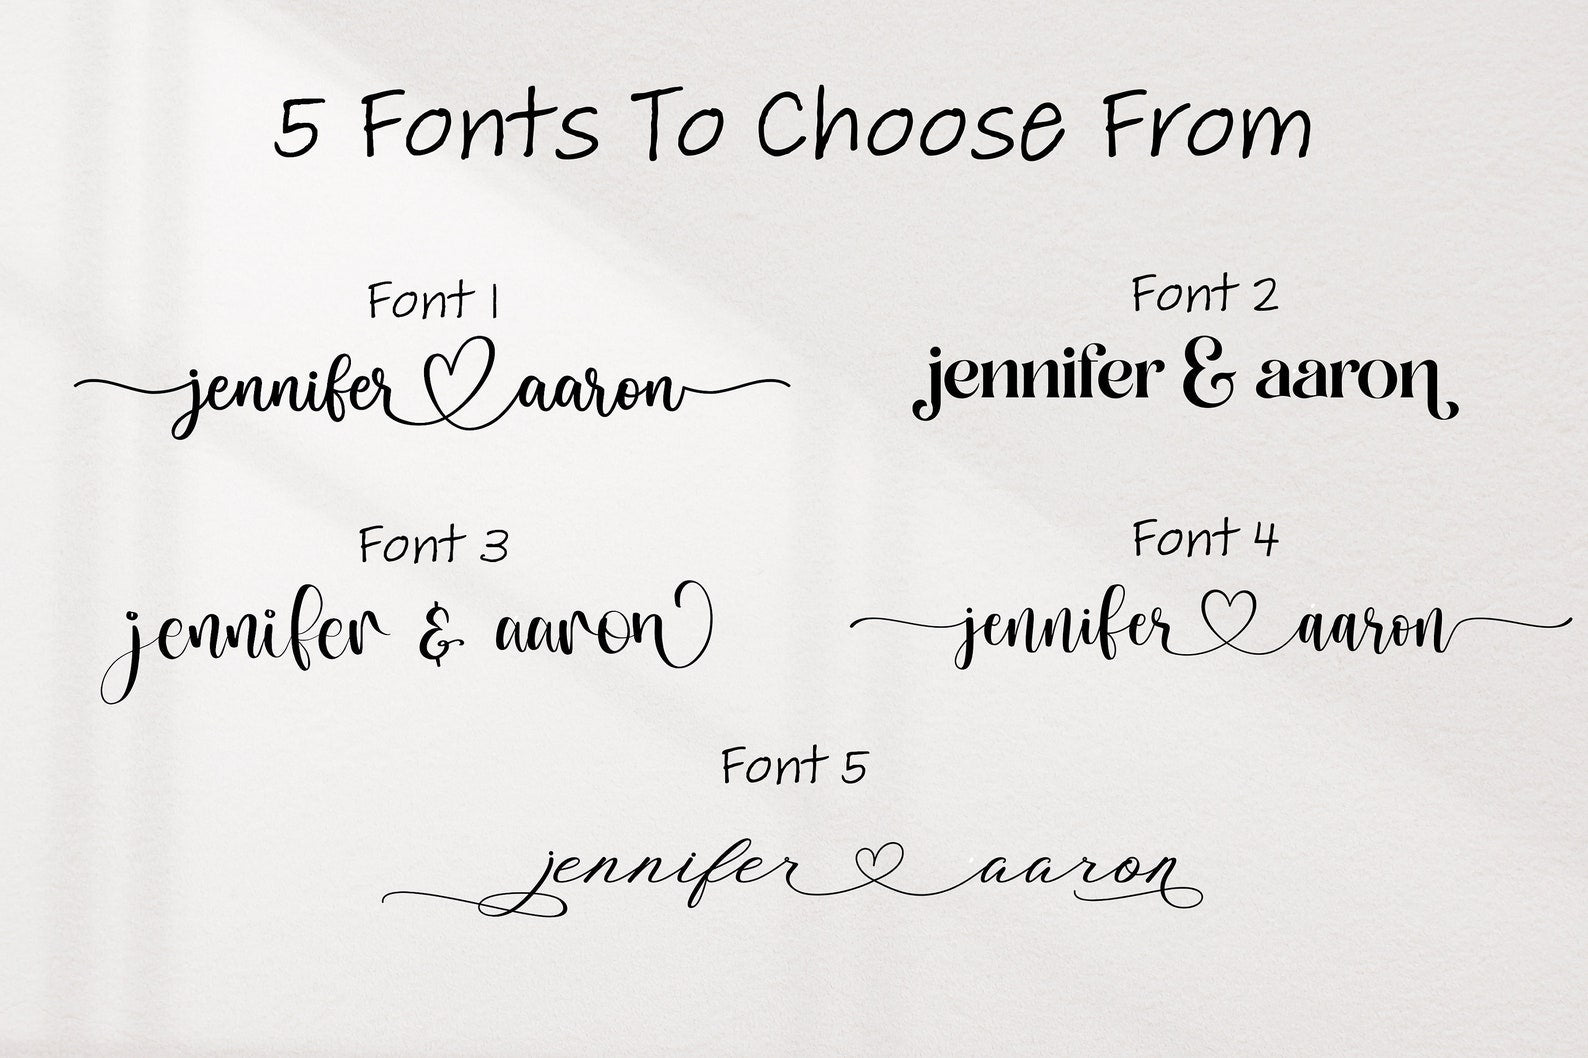 5 Fonts To Choose From
Font 1
jennifer ♡ aaron
Font 2
jennifer & aaron
Font 3
jennifer & aaron
Font 4
jennifer ♡ aaron
Font 5
jennifer ♡ aaron